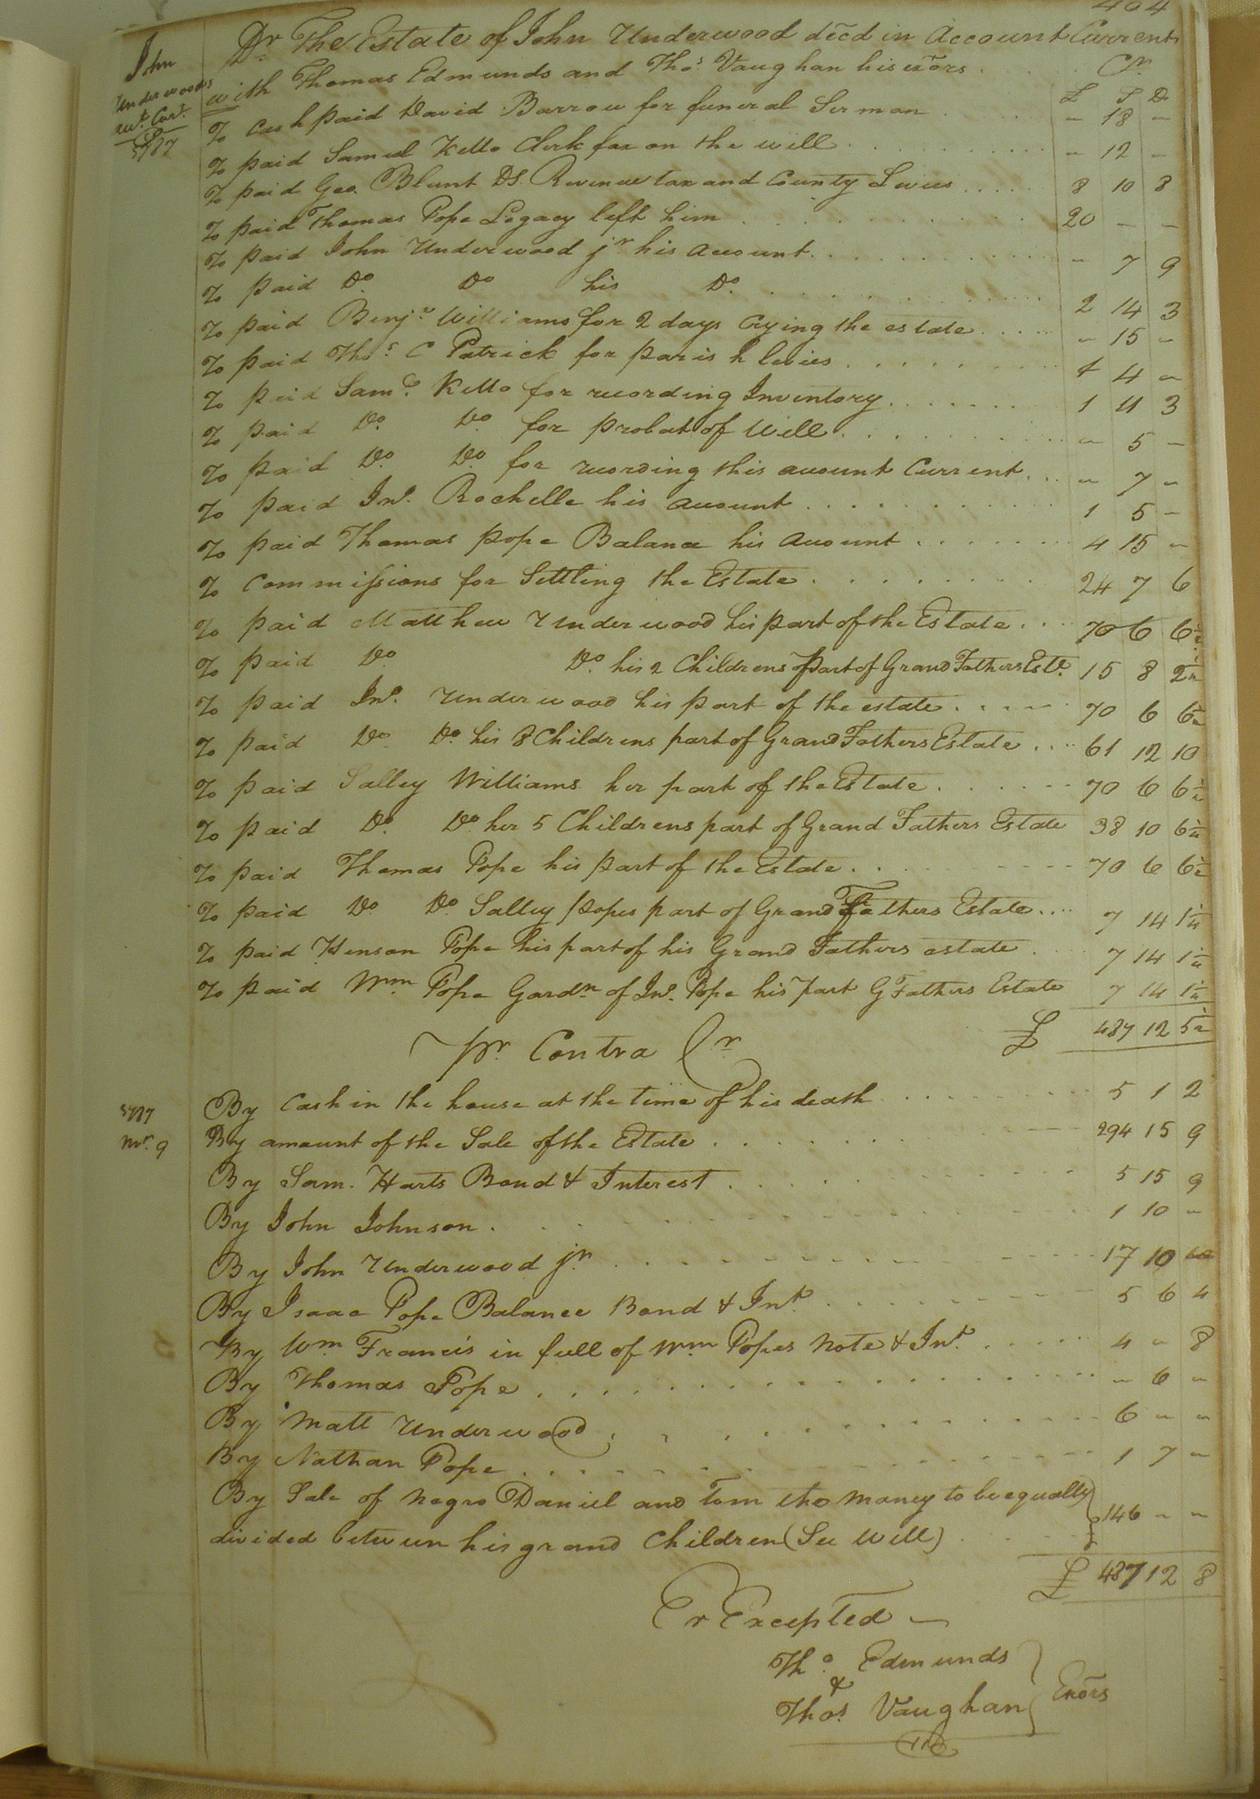 404
John
Underwoods
Acct. Curt.
1797
Dr The Estate of John Underwood decd in Account Current
with Thomas Edmunds and Thos Vaughan his exors Cr
£ S D
To Cash paid David Barrow for funeral Sermon - 18 -
To paid Samuel Kello Clerk fee on the will - 12 -
To paid Geo. Blunt DS. Revenue tax and County Levies 8 10 8
To paid Thomas Pope Legacy left him 20 - -
To paid John Underwood jr his account - 7 9
To paid Do Do his Do 2 14 3
To paid Benja Williams for 2 days Crying the estate - 15 -
To paid Thos C Patrick for parish levies 4 -
To paid Saml. Kello for recording Inventory 1 11 3
To paid Do Do for probat of Will - 5 -
To paid Do Do for recording this account Current - 7 -
To paid Jno. Rochelle his account 1 5 -
To paid Thomas pope Balance his account 4 15 -
To Commissions for Settling the Estate 24 7 6
To paid Matthew Underwood his part of the Estate 70 6 6½
To paid Do Do his 2 Childrens part of Grand Fathers Este. 15 8 2½
To paid Jno. Underwood his part of the estate 70 6 6½
To paid Do Do his 8 Childrens part of Grand Fathers Estate 61 12 10
To paid Salley Williams her part of the Estate 70 6 6½
To paid Do Do her 5 Childrens part of Grand Fathers Estate 38 10 6¼
To paid Thomas Pope his part of the Estate 70 6 6½
To paid Do Do Salley popes part of Grand Fathers Estate 7 14 1¼
To paid Henson Pope his part of his Grand Fathers estate 7 14 1¼
To paid Wm Pope Gardn of Jno. Pope his part G Fathers Estate 7 14 1¼
£ 487 12 5½
Pr Contra Cr
1797
Novr. 9
By Cash in the house at the time of his death 5 1 2
By amount of the Sale of the Estate 294 15 9
By Sam. Harts Bond & Interest 5 15 9
By John Johnson 1 10 -
By John Underwood jr 17 10
By Isaac Pope Balance Bond & Int. 5 6 4
By Wm Francis in full of Wm Popes note & Int. 4 - 8
By Thomas Pope - 6 -
By Matt Underwood 6 - -
By Nathan Pope 1 7 -
By Sale of negro Daniel and Tom the money to be equally
divided between his grand Children (See Will) 146 - -
£ 487 12 8
Er Excepted
Tho. Edmunds
&
Thos Vaughan Exors